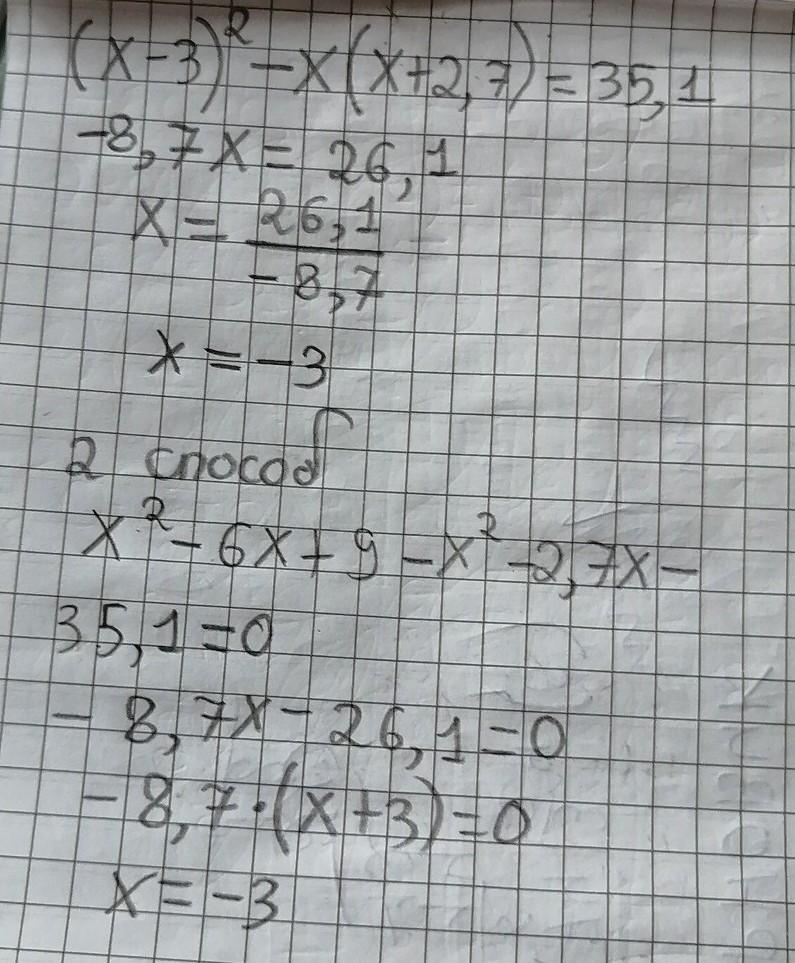 (x-3)² - x(x+2,7) = 35,1
-8,7x = 26,1
x = 26,1 / -8,7
x = -3
2 способ
x² - 6x + 9 - x² - 2,7x -
35,1 = 0
- 8,7x - 26,1 = 0
- 8,7 · (x+3) = 0
x = -3